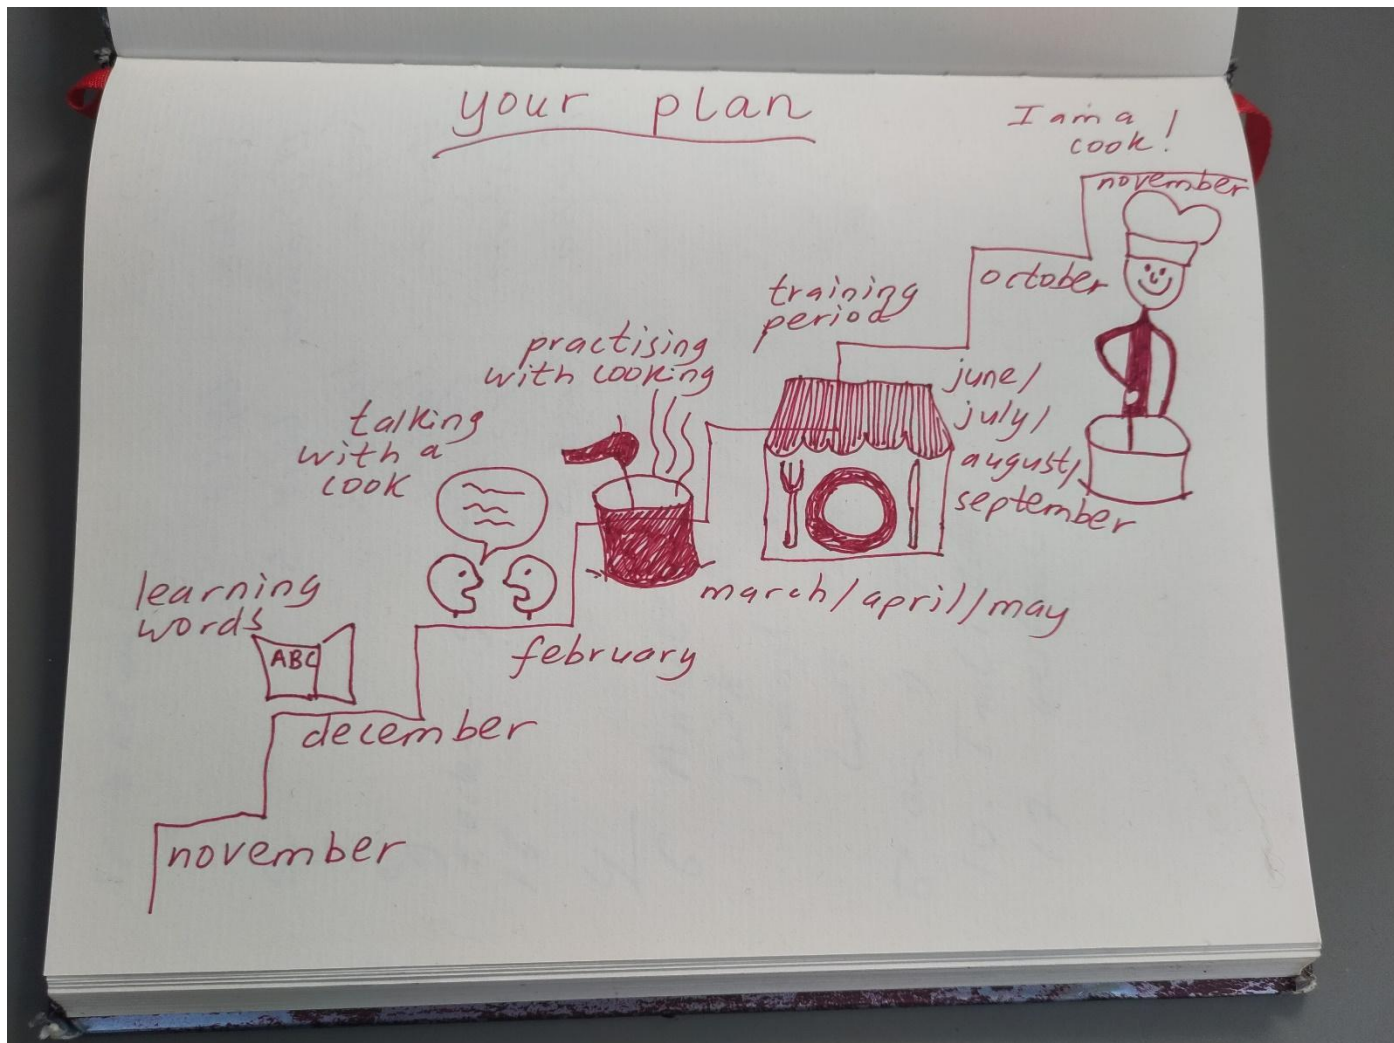 your plan
I am a
cook!
november
october
training
period
june/
july/
august/
september
practising
with cooking
march/april/may
talking
with a
cook
february
learning
words
ABC
december
november